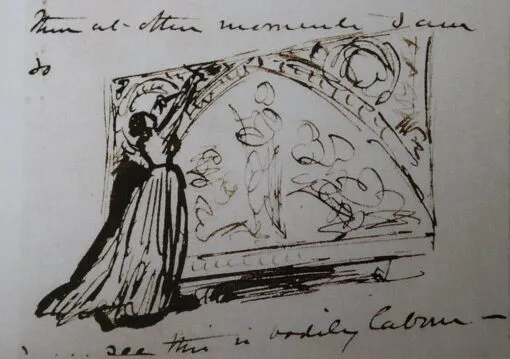 Then at other moments I am
so
. . . . see this is bodily labour —